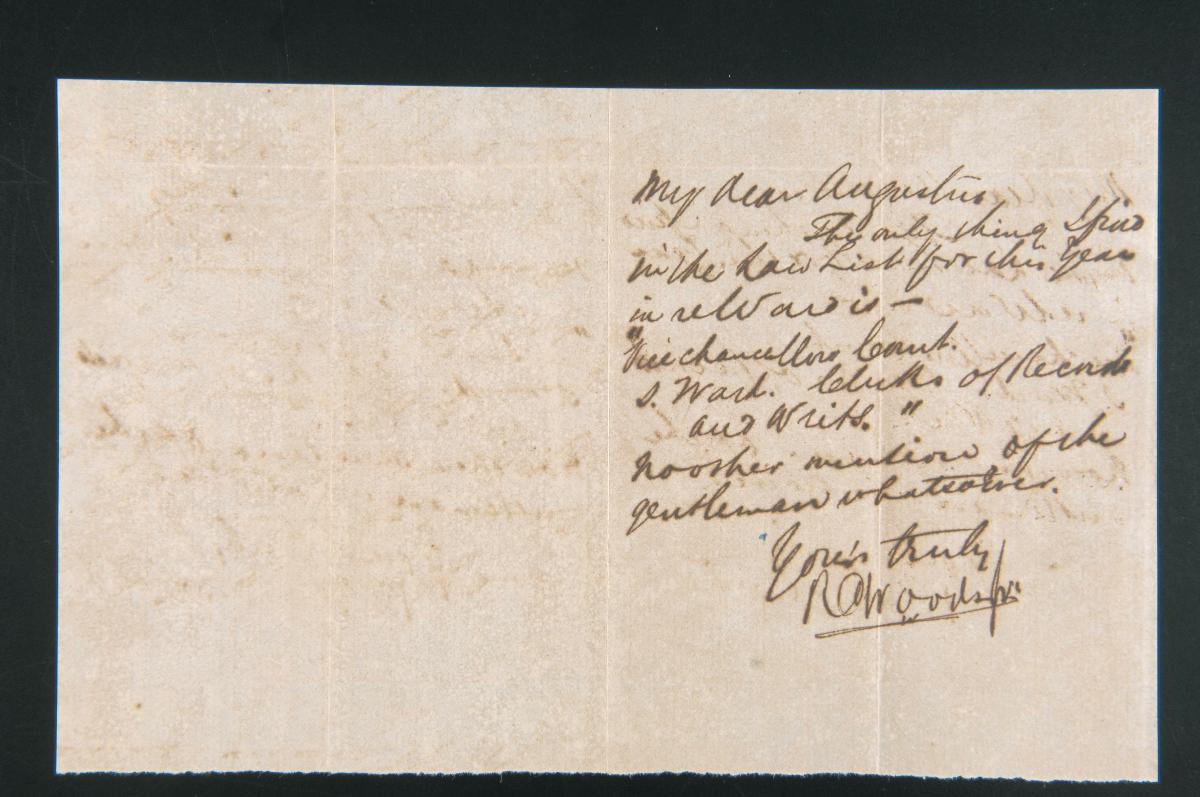 My dear Augustus
The only thing I find
in the Law List for this Year
in re Ward is —
"Vice chancellors Court.
S. Ward. Clerks of Records
and Writs."
No other mention of the
gentleman whatsoever.
Yours truly
R Woods